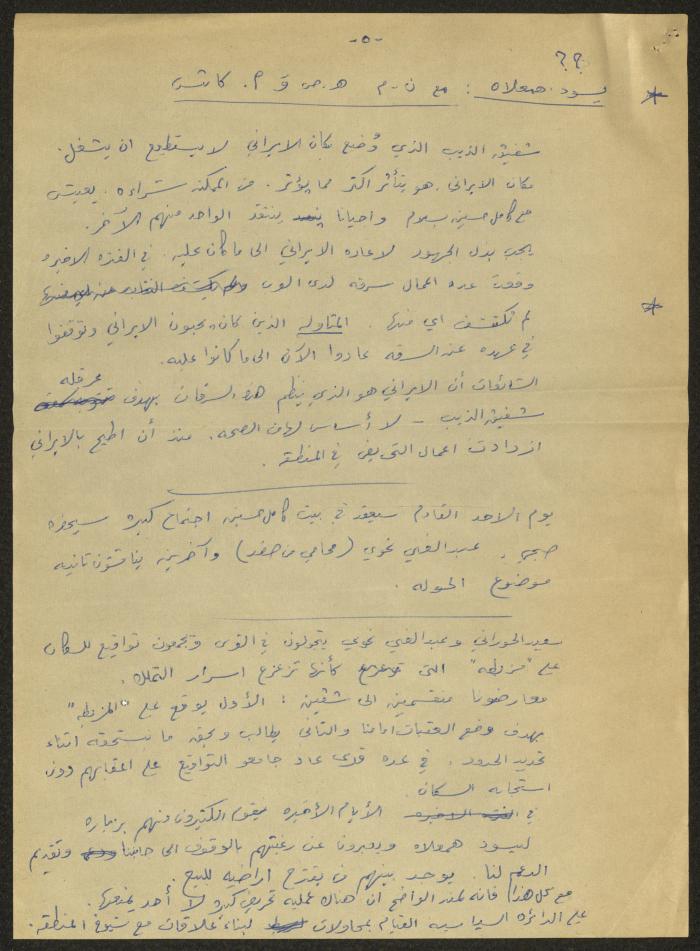 -٥-
؟؟
* يسود همعلاه : مع ن.م هـ.ص و م. كاتس
شفيق الذيب الذي وُضع مكان الايراني لا يستطيع ان يشغل.
مكان الايراني. هو يتأثر اكثر مما يؤثر. من الممكنه شراءه. يعيش
مع كامل حسين بسلام واحيانا ينتقد الواحد منهم الآخر.
يجب بدل الجهود لاعاده الايراني الى ما كان عليه. في الفتره الاخيره
وقعت عده اعمال سرقه لدى
لم تكتشف اي منها. المتاوله الذين كانوا يحبون الايراني وتوقفوا
في عهده عن السرقه عادوا الآن الى ما كانوا عليه.
الشائعات أن الايراني هو الذي ينظم هذه السرقات بهدف عرقله
شفيق الذيب - لا أساس لها من الصحه. منذ أن اطيح بالايراني
ازدادت اعمال التحريض في المنطقه.
يوم الاحد القادم سيعقد في بيت كامل حسين اجتماع كبيره سيحضره
صبحي، عبد الغني نحوي (محامي من صفد) وآخرين يناقشون ثانيه
موضوع الحوله.
سعيد الحوراني وعبد الغني نحوي يتجولون في القرى ويجمعون تواقيع للسكان
على "مزبطه" التى كأنها تزعزع اسرار التملك.
معارضونا منقسمين الى شقين: الأول يوقع على "المزبطه"
بهدف وضع العقبات امامنا والثاني يطالب وبحق ما نستحقه اثناء
تحديد الحدود. في عده قرى عاد جامعو التواقيع على اعقابهم دون
استجابه السكان.
في الأيام الأخيره يقوم الكثيرون منهم بزياره
ليسود همعلاه ويعبرون عن رغبتهم بالوقوف الى جانبنا وتقديم
الدعم لنا. يوجد بينهم من يقترح اراضيه للبيع.
مع كل هذا فانه لمن الواضح أن هناك عمليه تحريض كبيره لا أحد يمنعها.
على الدائره السياسيه القيام بمحاولات لبناء علاقات مع شيوخ المنطقه.
*